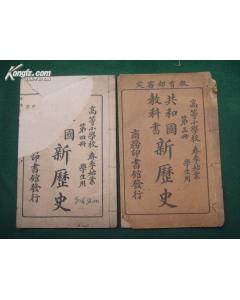 Kongfz.com
教育部審定
高等小學校 春季始業
第五冊 學生用
共和國
教科書
新歷史
商務印書館發行
高等小學校 春季始業
第四冊 學生用
國
新歷史
印書館發行